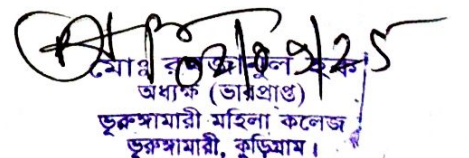 02/09/25
মোঃ হক
অধ্যক্ষ (ভারপ্রাপ্ত)
ভূরুঙ্গামারী মহিলা কলেজ
ভূরুঙ্গামারী, কুড়িগ্রাম।